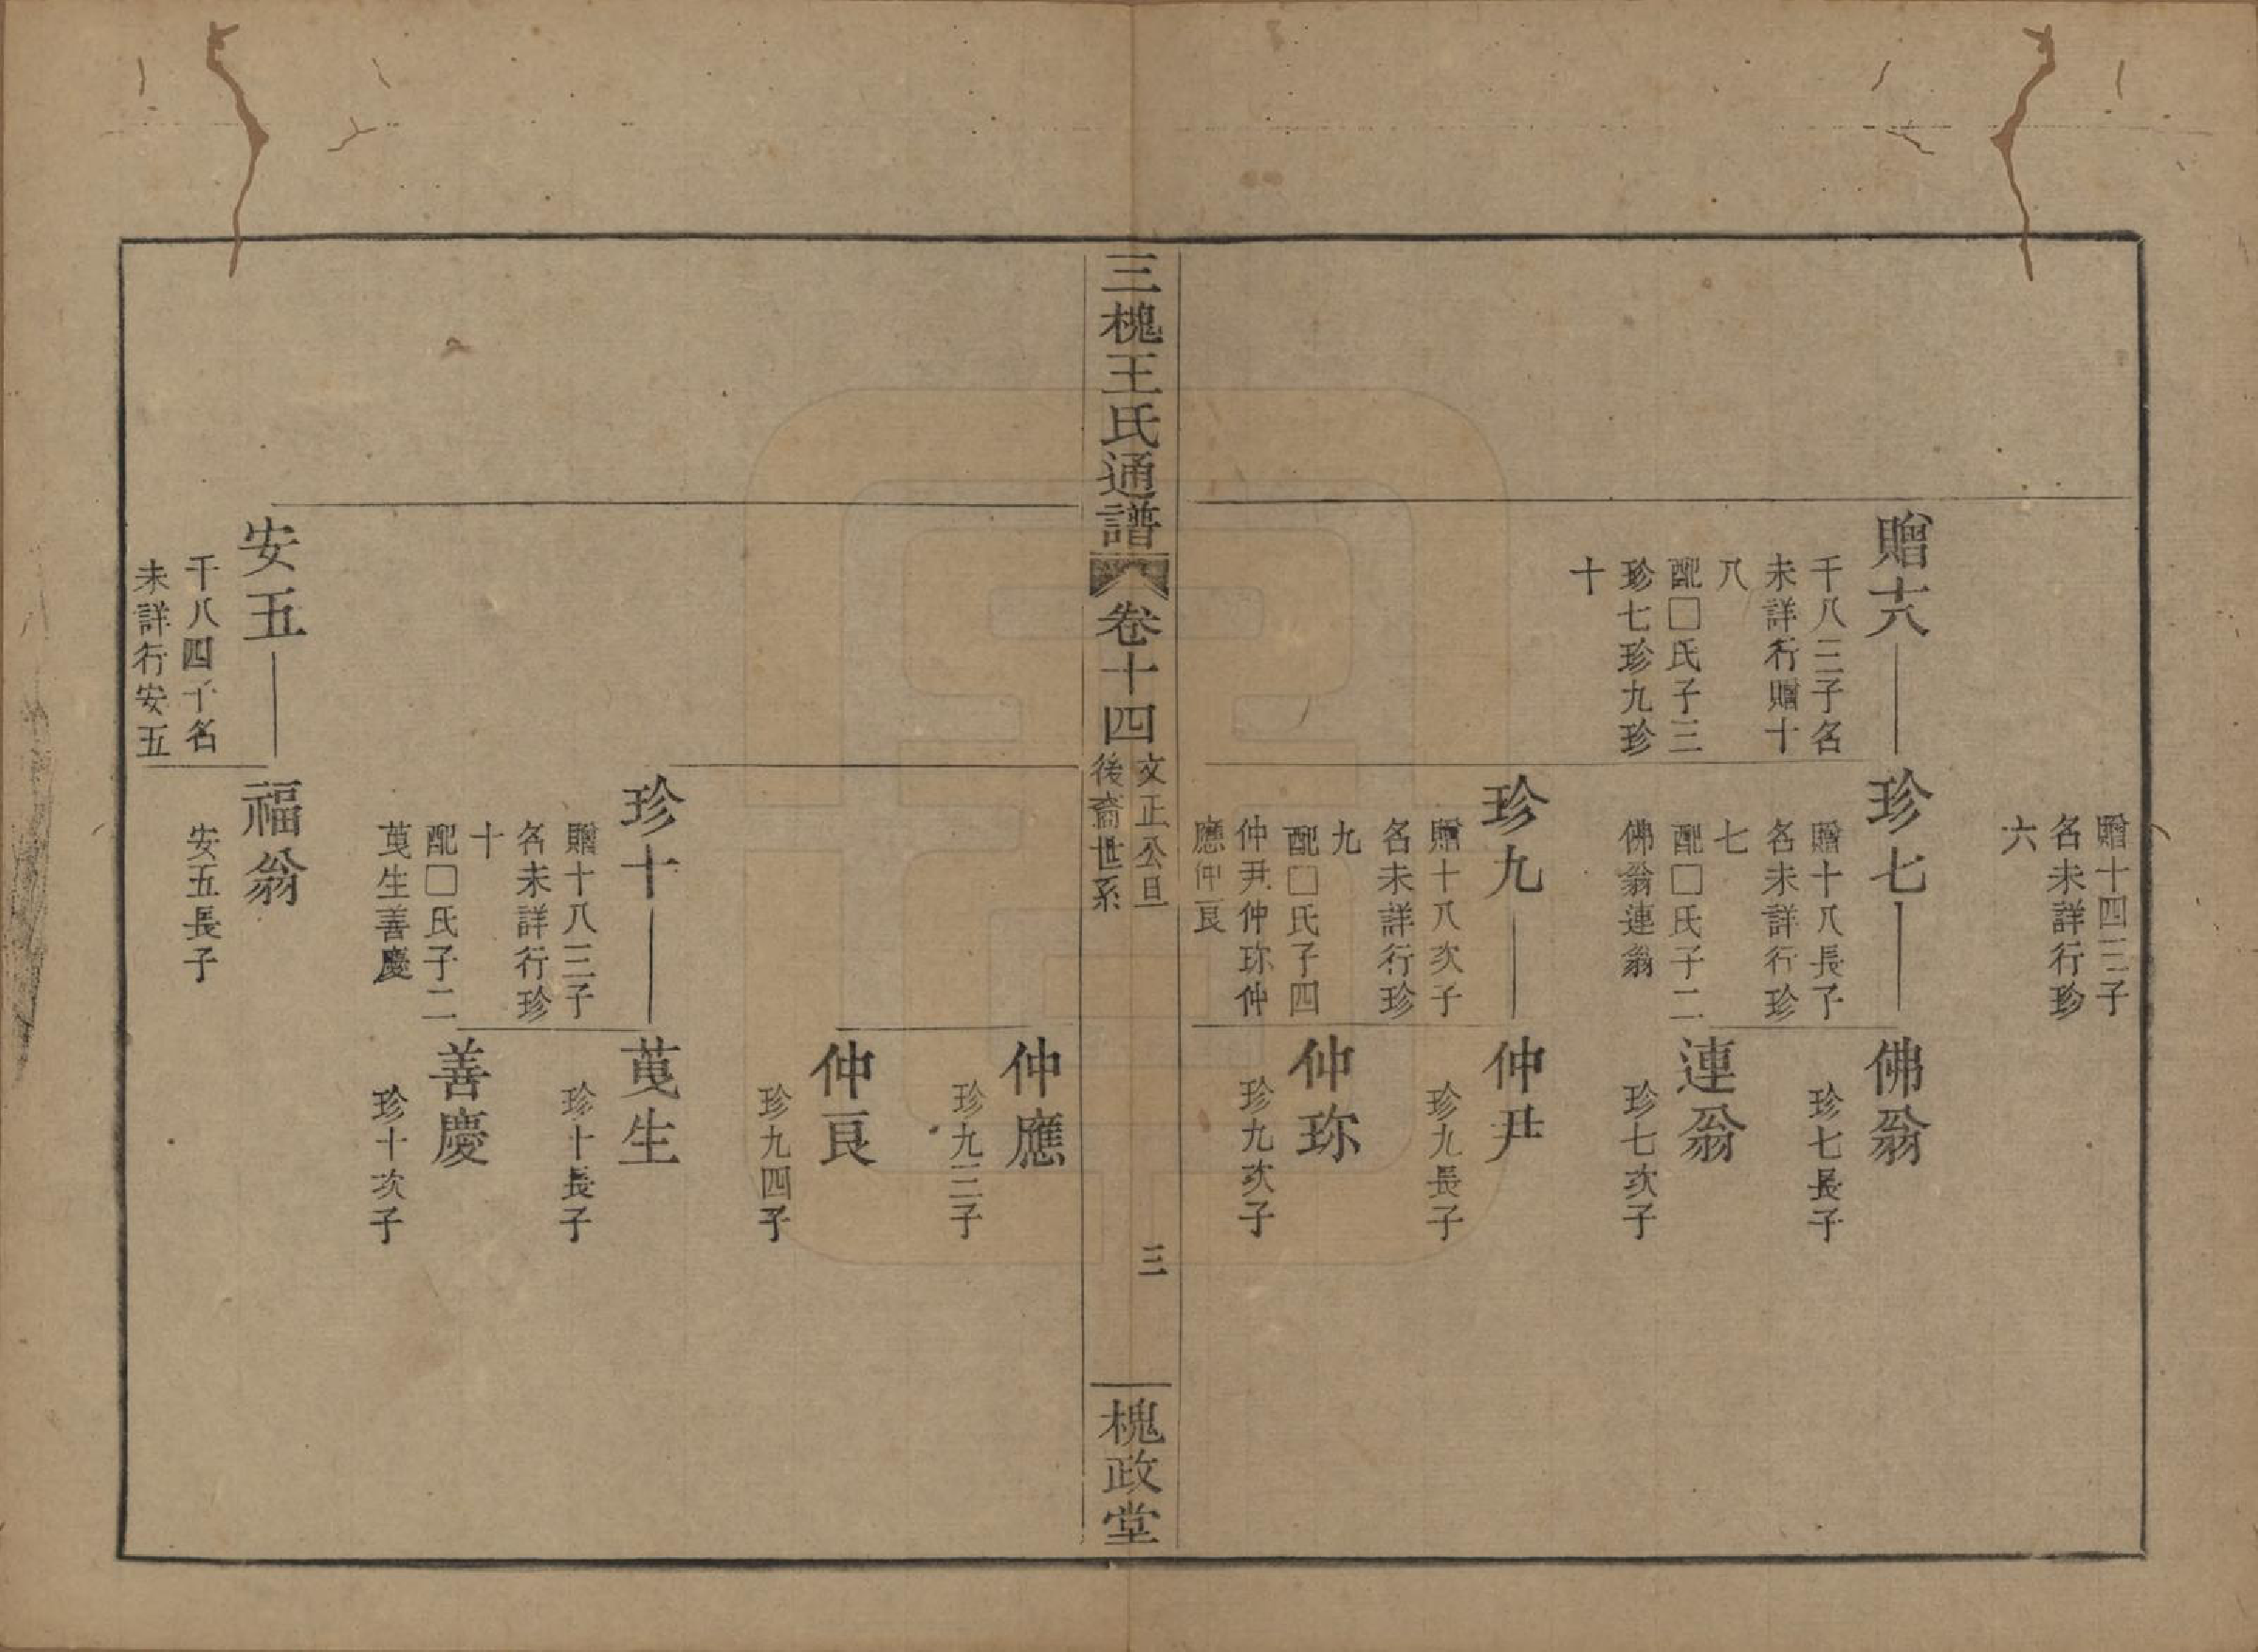 贈十四三子
名未詳行珍
六
贈十八
千八三子名
未詳行贈十
八
配□氏子三
珍七珍九珍
十
珍七
贈十八長子
名未詳行珍
七
配□氏子二
佛翁連翁
佛翁
珍七長子
連翁
珍七次子
珍九
贈十八次子
名未詳行珍
九
配□氏子四
仲尹仲珎仲
應仲良
仲尹
珍九長子
仲珎
珍九次子
三槐王氏通譜
卷十四
文正公旦
後裔世系
三
槐政堂
仲應
珍九三子
仲良
珍九四子
珍十
贈十八三子
名未詳行珍
十
配□氏子二
萈生善慶
萈生
珍十長子
善慶
珍十次子
安五
千八四子名
未詳行安五
福翁
安五長子